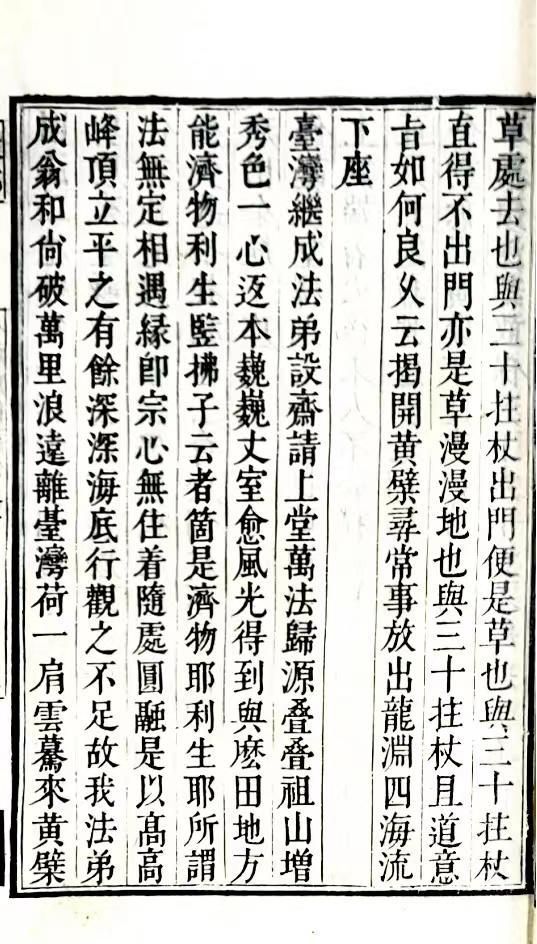 草處去也與三十拄杖出門便是草也與三十拄杖
直得不出門亦是草漫漫地也與三十拄杖且道意
旨如何良乆云揭開黄檗尋常事放出龍淵四海流
下座
臺灣繼成法弟設齋請上堂萬法歸源叠叠祖山增
秀色一心返本巍巍丈室愈風光得到與麽田地方
能濟物利生竪拂子云者箇是濟物耶利生耶所謂
法無定相遇緣卽宗心無住着隨處圓融是以髙高
峰頂立平之有餘深深海底行觀之不足故我法弟
成翁和尙破萬里浪遠離臺灣荷一肩雲驀來黄檗